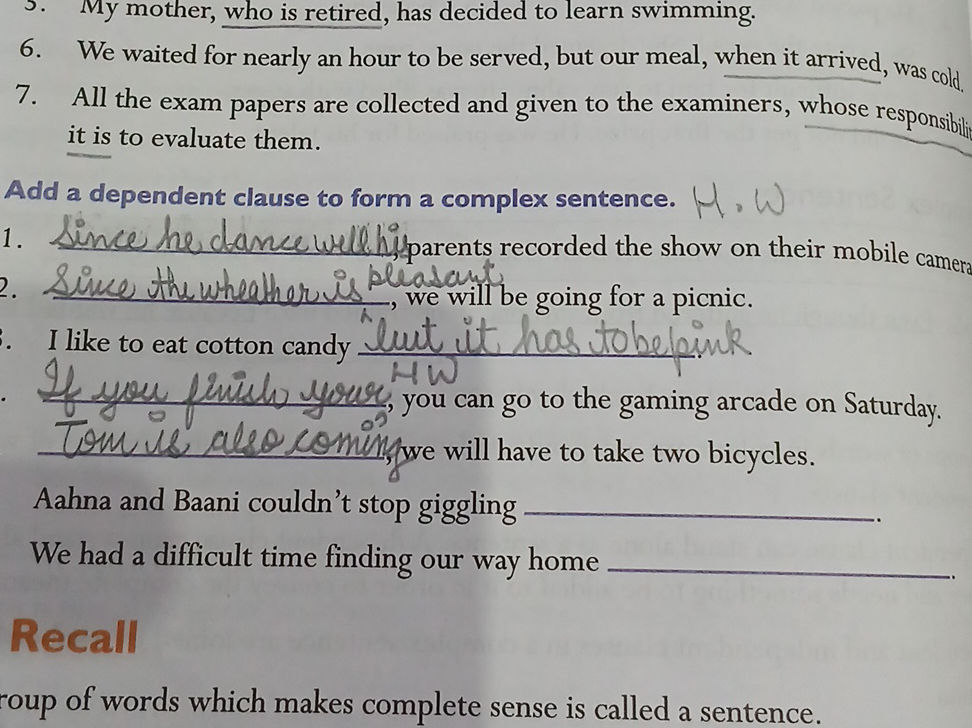 5. My mother, who is retired, has decided to learn swimming.
6. We waited for nearly an hour to be served, but our meal, when it arrived, was cold.
7. All the exam papers are collected and given to the examiners, whose responsibili
it is to evaluate them.
Add a dependent clause to form a complex sentence. H.W
1. Since he dance well his parents recorded the show on their mobile camera
2. Since the wheather is pleasant, we will be going for a picnic.
3. I like to eat cotton candy but it has to be pink.
. If you finish your HW, you can go to the gaming arcade on Saturday.
Tom is also coming, we will have to take two bicycles.
Aahna and Baani couldn't stop giggling ______.
We had a difficult time finding our way home ______.
Recall
roup of words which makes complete sense is called a sentence.